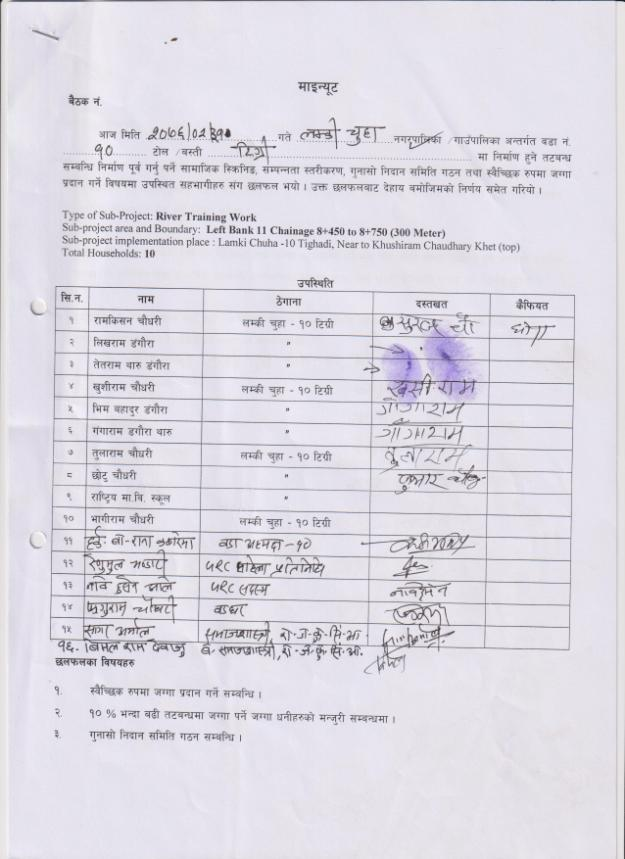 माइन्यूट
बैठक नं.
आज मिति २०७६।०२। गते लम्की चुहा नगरपालिका /गाउँपालिका अन्तर्गत वडा नं.
१० टोल /बस्ती टिग्री मा निर्माण हुने तटबन्ध
सम्बन्धि निर्माण पूर्व गर्नु पर्ने सामाजिक स्क्रिनिङ, सम्पन्नता स्तरीकरण, गुनासो निदान समिति गठन तथा स्वैच्छिक रुपमा जग्गा
प्रदान गर्ने विषयमा उपस्थित सहभागीहरु संग छलफल भयो । उक्त छलफलबाट देहाय बमोजिमको निर्णय समेत गरियो ।
Type of Sub-Project: River Training Work
Sub-project area and Boundary: Left Bank 11 Chainage 8+450 to 8+750 (300 Meter)
Sub-project implementation place : Lamki Chuha -10 Tighadi, Near to Khushiram Chaudhary Khet (top)
Total Households: 10
उपस्थिति
सि.न. नाम ठेगाना दस्तखत कैफियत
१ रामकिसन चौधरी लम्की चुहा - १० टिग्री सुरज चौ छोरा
२ लिखराम डंगौरा "
३ तेतराम थारु डंगौरा "
४ खुशीराम चौधरी लम्की चुहा - १० टिग्री खुसीराम
५ भिम बहादुर डंगौरा " गंगाराम
६ गंगाराम डगौरा थारु " गंगाराम
७ तुलाराम चौधरी लम्की चुहा - १० टिग्री तुलाराम
८ छोटु चौधरी "
९ राष्ट्रिय मा.वि. स्कूल "
१० भागीराम चौधरी लम्की चुहा - १० टिग्री
११ वडा अध्यक्ष -१०
१२ प्रतिनिधि
१३ सदस्य
१४ चौधरी
१५ समाजशास्त्री, रा. ज. कु. सिं. आ.
१६. बिमल राम समाजशास्त्री, रा. ज. कु. सिं. आ.
छलफलका विषयहरु
१. स्वैच्छिक रुपमा जग्गा प्रदान गर्ने सम्बन्धि ।
२. १० % भन्दा बढी तटबन्धमा जग्गा पर्ने जग्गा धनीहरुको मन्जुरी सम्बन्धमा ।
३. गुनासो निदान समिति गठन सम्बन्धि ।